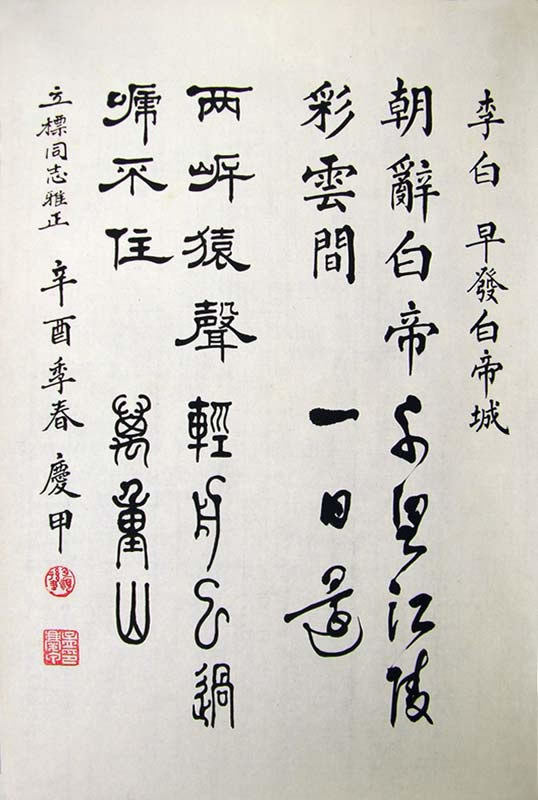 李白 早發白帝城
朝辭白帝
彩雲間
千里江陵
一日還
两岸猿聲
嗁不住
輕舟已過
萬重山
立標同志雅正 辛酉季春 慶甲